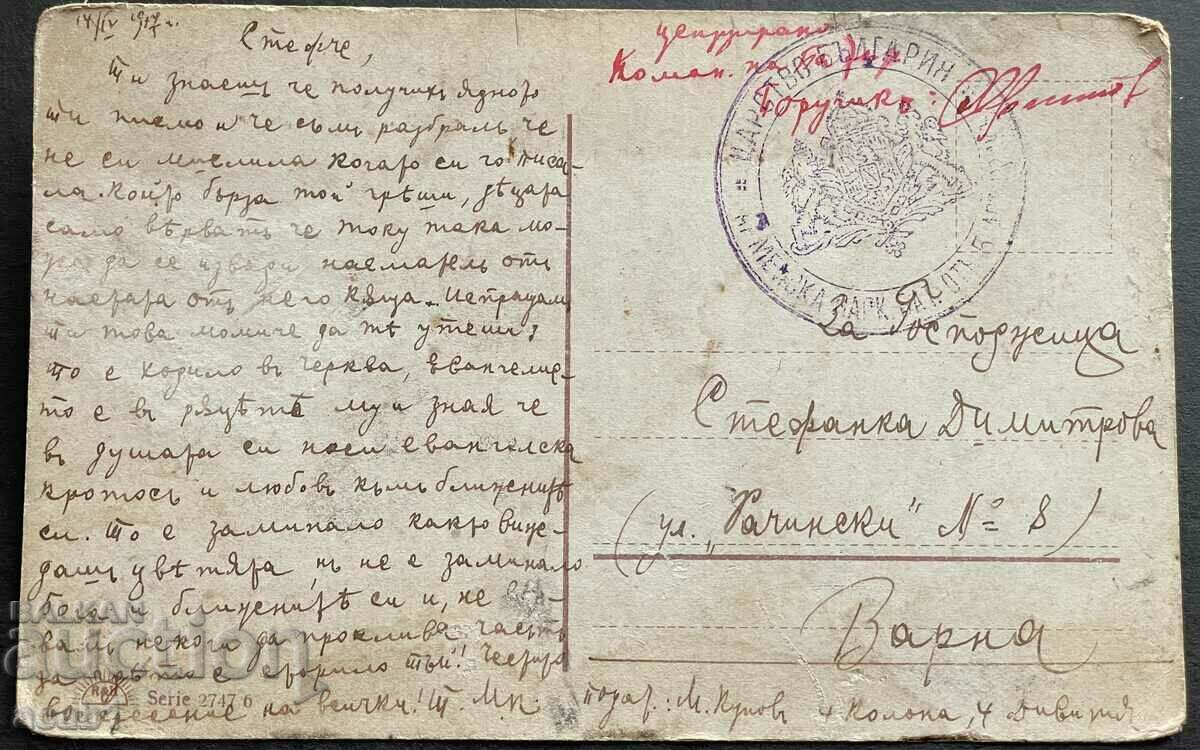 14/IV 917 г.
Стефче,
Ти знаеш че получихъ ядного
ти писмо и че съмъ разбралъ че
не си мислила когато си го писа-
ла. Който бърза той грѣши, дѣцата
само вѣрватъ че току така мо-
же да се извади наемателъ отъ
наетата отъ него кѫща. Испращам
ти това момиче да тѣ утеши;
то е ходило въ черква, евангелие-
то е въ рѫцѣтѣ му и зная че
въ душата си носи евангелска
кротость и любовь къмъ ближнитѣ
си. То е заминало както виж-
дашъ цвѣтята, нъ не е заминало
бога и ближнитѣ си и, не
некога да проклива часътъ
за дѣто е сторило тъй! Честито
воскресение на всички! Т. МК.
цензурирано
Коман. на
Поручикъ: Христов
ЦАРСТВО БЪЛГАРИЯ
АРМЕЙСКА ПАРК
За Госпожица
Стефанка Димитрова
(ул. „Рачински" № 8)
Варна
подат.: М. Куповъ 4 Колона, 4 Дивизия
Serie 2747 6
BALKAN
auction